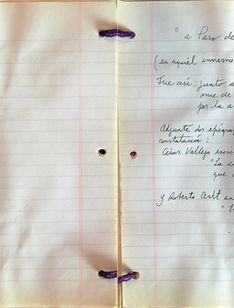 " a Paso de
(en aquel invierno
Fue así: junto a
por la a
Adjunté dos epígra
constatación:
César Vallejo escri
"La
que
y Roberto Arlt au
"